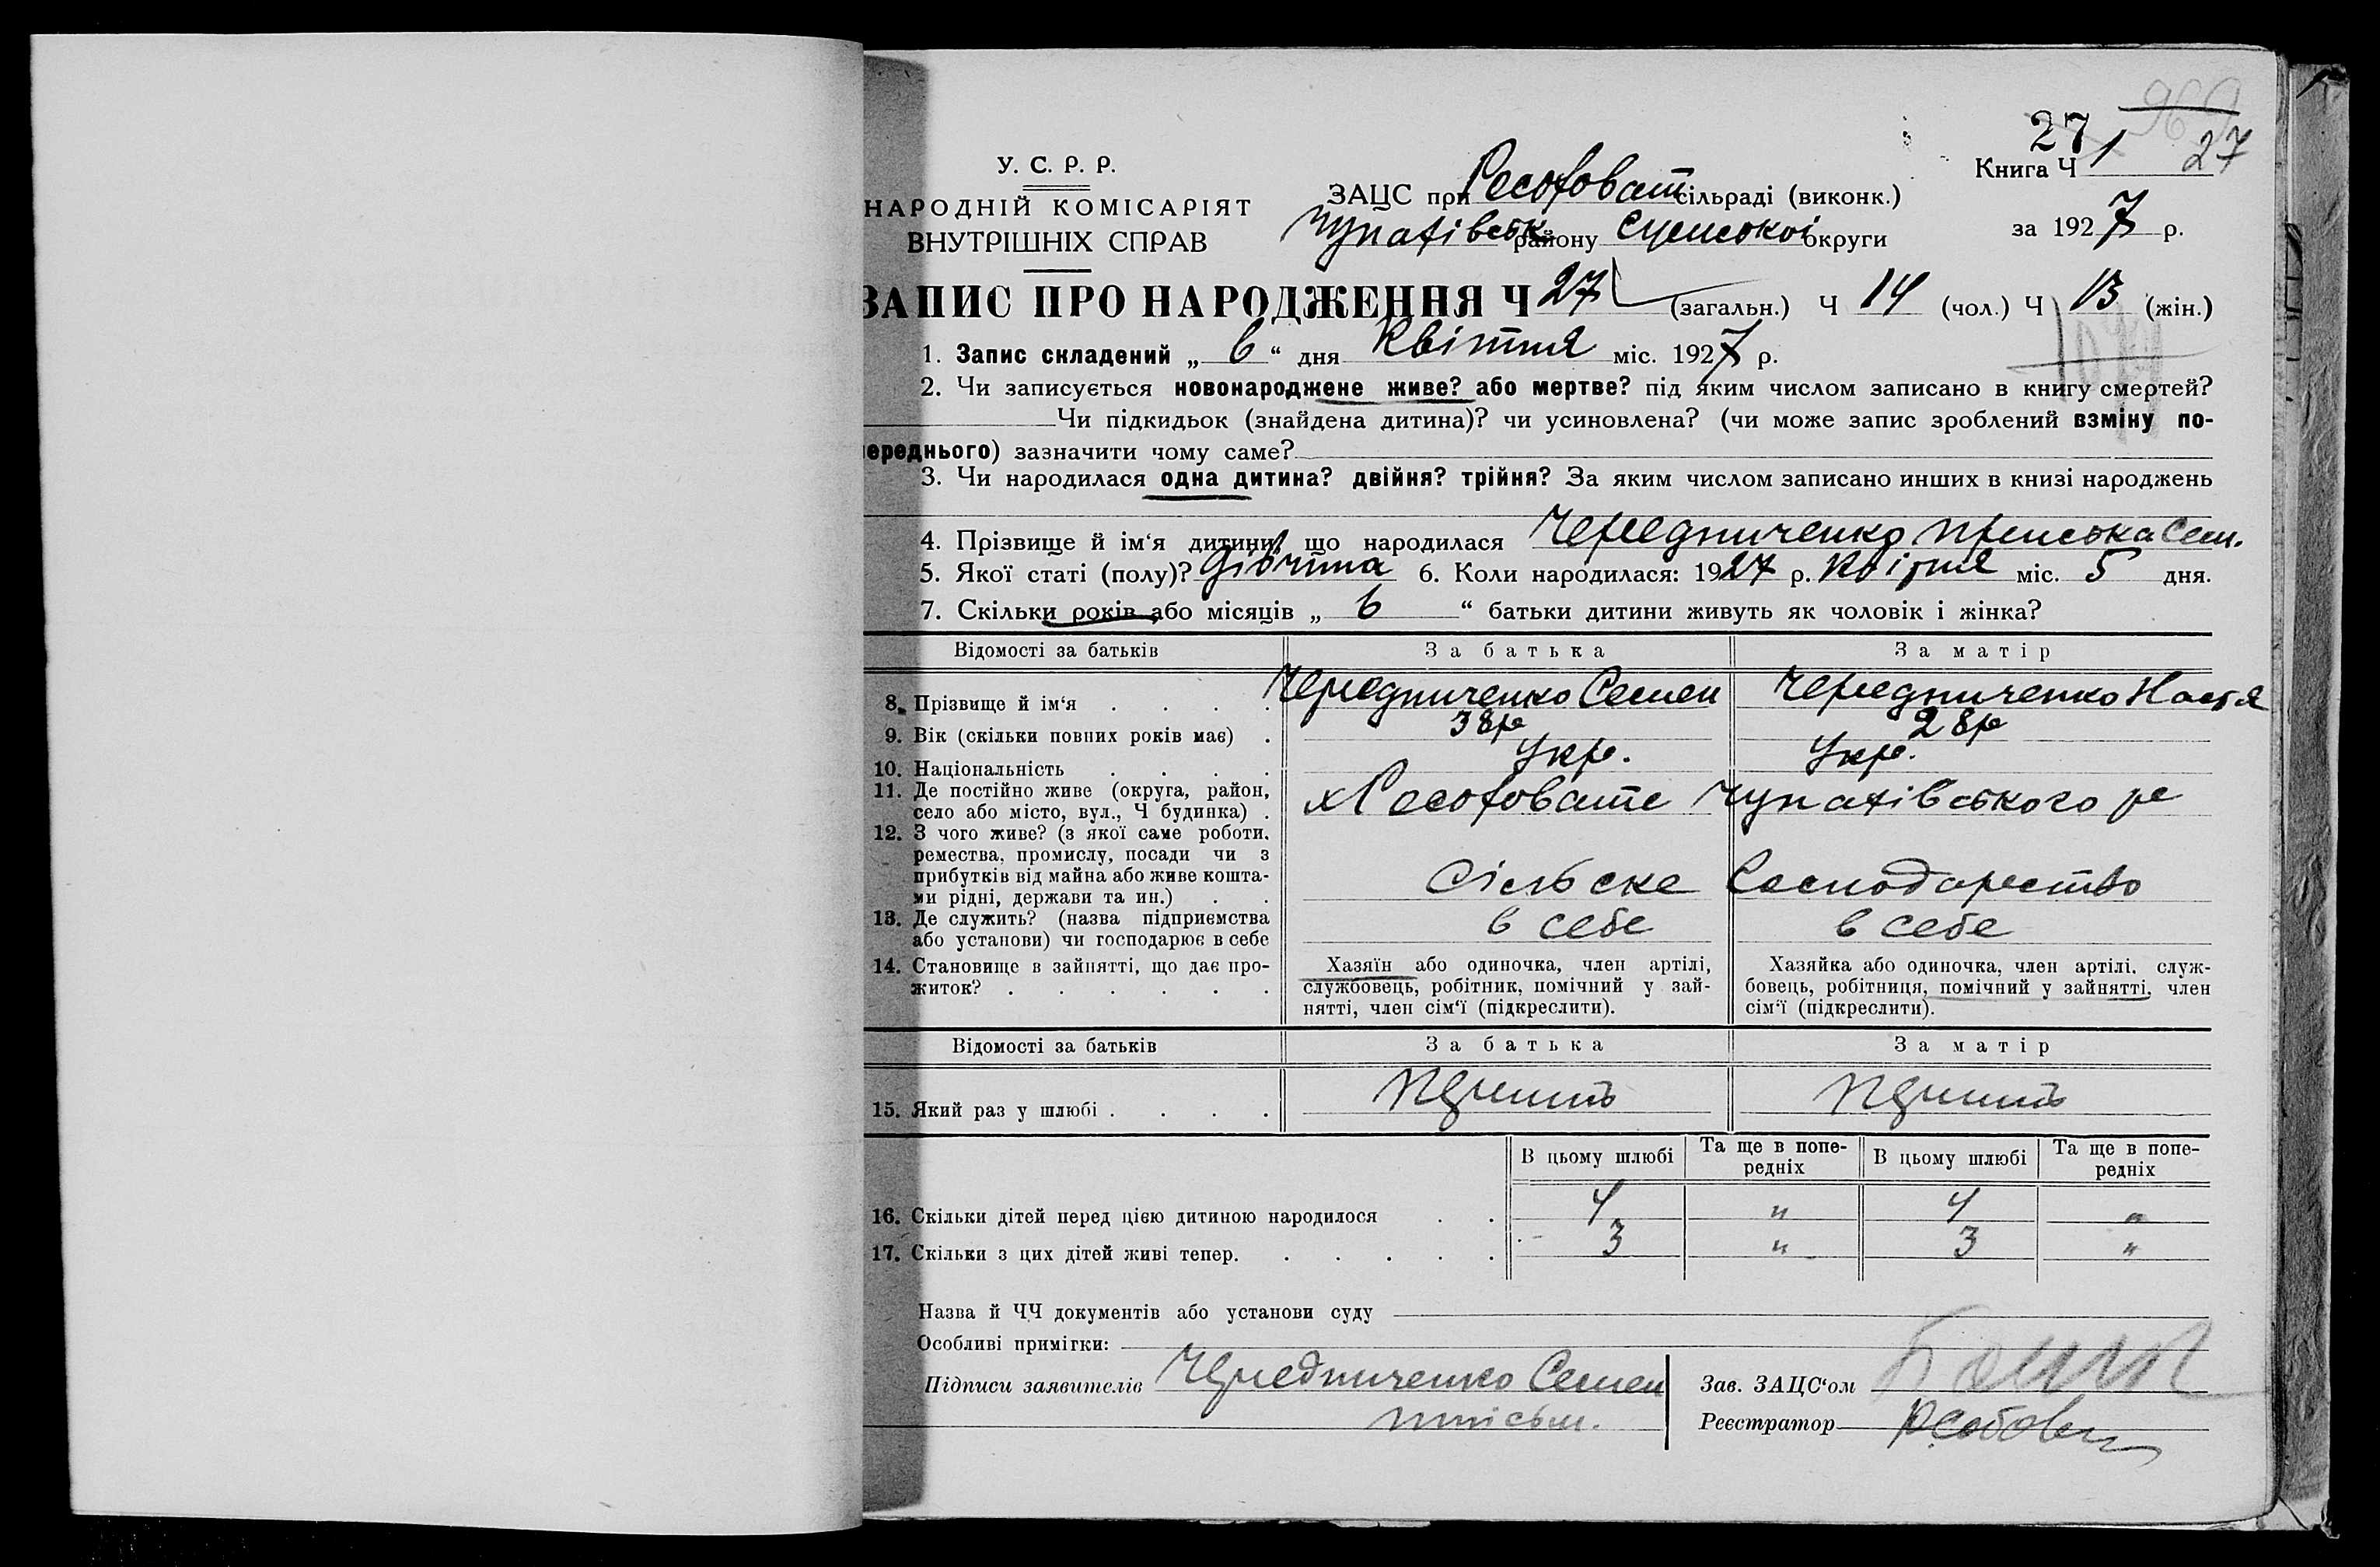 27 969
Книга Ч 1 27
У. С. Р. Р.
НАРОДНІЙ КОМІСАРІЯТ
ВНУТРІШНІХ СПРАВ
ЗАЦС при сільраді (виконк.)
району Сумської округи
за 1927 р.
ЗАПИС ПРО НАРОДЖЕННЯ Ч 27 (загальн.) Ч 14 (чол.) Ч 13 (жін.)
1. Запис складений „ 6 “ дня Квітня міс. 1927 р.
2. Чи записується новонароджене живе? або мертве? під яким числом записано в книгу смертей?
Чи підкидьок (знайдена дитина)? чи усиновлена? (чи може запис зроблений взміну по-
переднього) зазначити чому саме?
3. Чи народилася одна дитина? двійня? трійня? За яким числом записано инших в книзі народжень
4. Прізвище й ім‘я дитини, що народилася Чередниченко Пріська Сем.
5. Якої статі (полу)? Дівчина 6. Коли народилася: 1927 р. Квітня міс. 5 дня.
7. Скільки років або місяців „ 6 “ батьки дитини живуть як чоловік і жінка?
Відомості за батьків За батька За матір
8. Прізвище й ім‘я . . . . Чередниченко Семен Чередниченко Настя
9. Вік (скільки повних років має) . 38р 28р
10. Національність . . . . Укр. Укр.
11. Де постійно живе (округа, район,
село або місто, вул., Ч будинка) .
12. З чого живе? (з якої саме роботи,
ремества, промислу, посади чи з
прибутків від майна або живе кошта-
ми рідні, держави та ин.) . . Сільське Господарство
13. Де служить? (назва підприємства
або установи) чи господарює в себе в себе в себе
14. Становище в зайнятті, що дає про-
житок? . . . . . .
Хазяїн або одиночка, член артілі,
службовець, робітник, помічний у зай-
нятті, член сім‘ї (підкреслити).
Хазяйка або одиночка, член артілі, служ-
бовець, робітниця, помічний у зайнятті, член
сім‘ї (підкреслити).
Відомості за батьків За батька За матір
15. Який раз у шлюбі . . . .
В цьому шлюбі Та ще в попе-
редніх В цьому шлюбі Та ще в попе-
редніх
16. Скільки дітей перед цією дитиною народилося . . 4 " 4 "
17. Скільки з цих дітей живі тепер. . . . . . 3 " 3 "
Назва й ЧЧ документів або установи суду
Особливі примітки:
Підписи заявителів Чередниченко Семен
Зав. ЗАЦС‘ом
Реєстратор